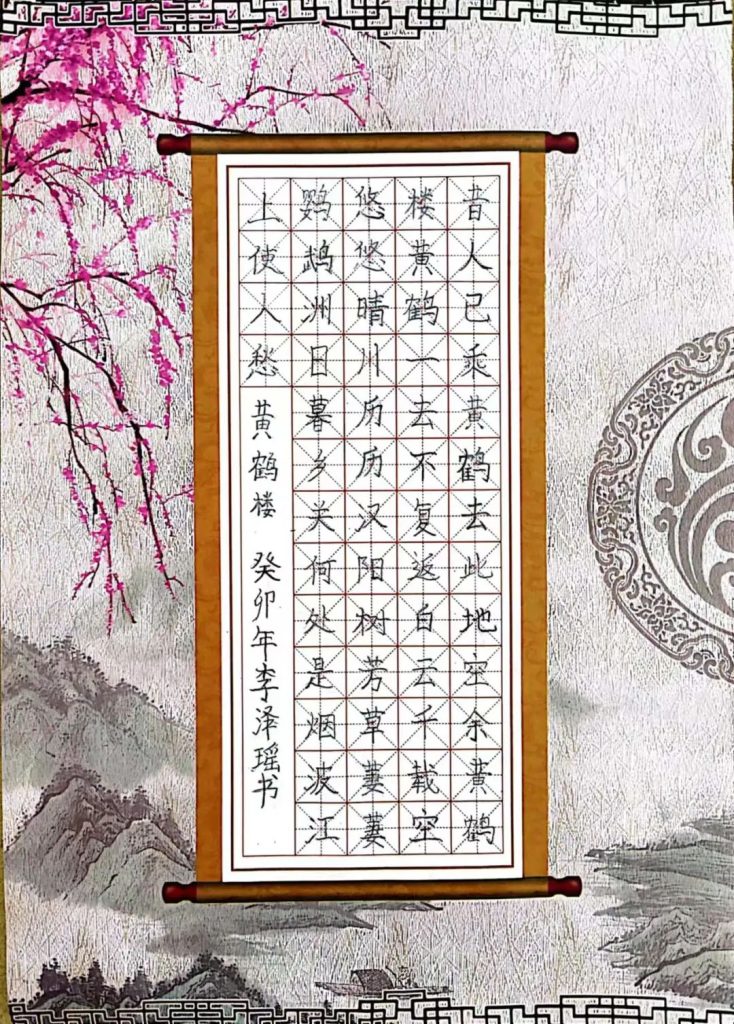 昔人已乘黄鹤去此地空余黄鹤
楼黄鹤一去不复返白云千载空
悠悠晴川历历汉阳树芳草萋萋
鹦鹉洲日暮乡关何处是烟波江
上使人愁 黄鹤楼 癸卯年李泽瑶书